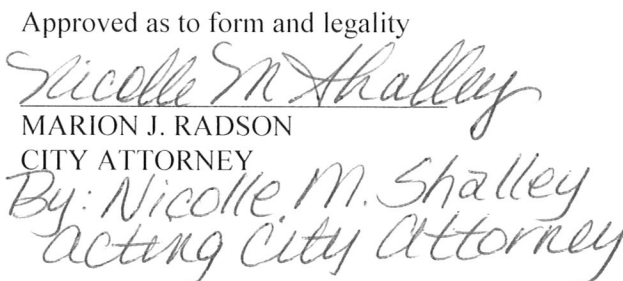 Approved as to form and legality
Nicolle M Shalley
MARION J. RADSON
CITY ATTORNEY
By: Nicolle M. Shalley
acting City Attorney